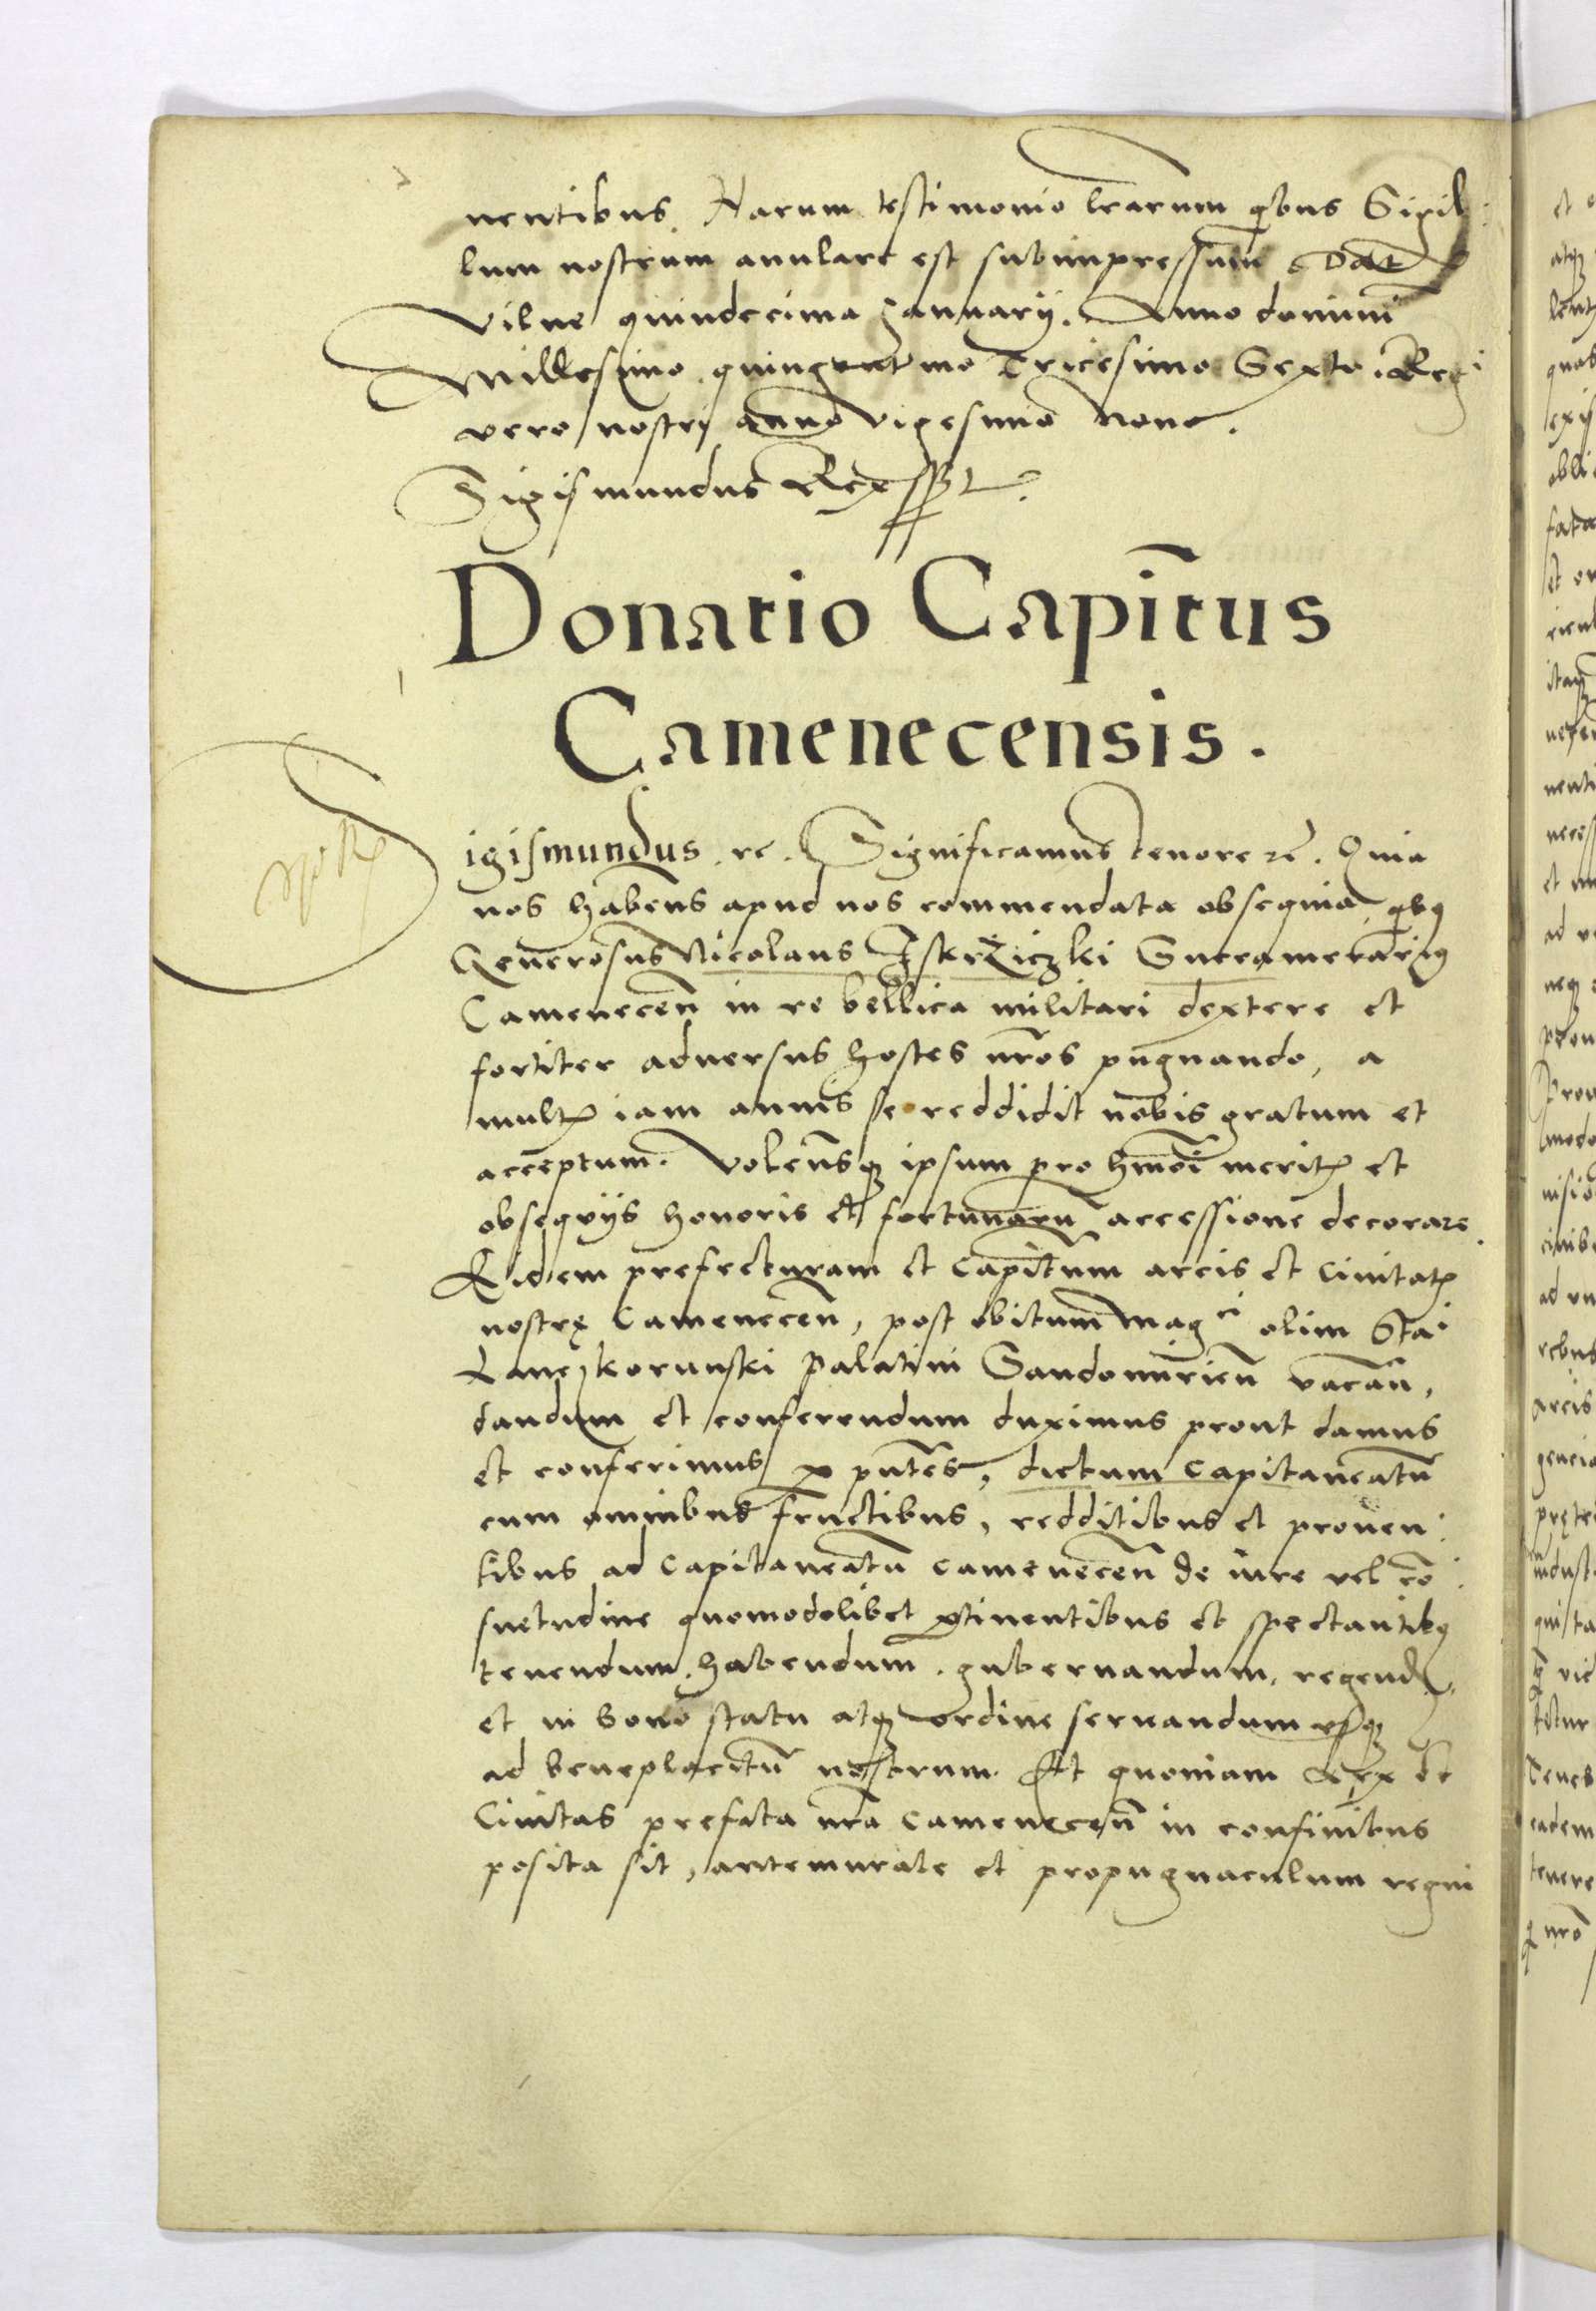 nentibus. Harum testimonio lrarum qbus Sigil
lum nostrum anulare est subimpressum Dat
Vilne quindecima January. Anno domini
Millesimo quingentmo Tricesimo Sexto. Regi
vero nostri anno vigesimo nono.
Sigismundus Rex sst.
Donatio Capitus
Camenecensis.
Sigismundus. rc. Significamus tenore rc. Quia
nos habens apud nos commendata obsequia qbus
Generosus Nicolaus Iskrziczki Succamerarius
Camenecen in re bellica militari dextere et
fortiter adversus hostes nros pugnando, a
multis iam annis se reddidit nobis gratum et
acceptum. Volensq ipsum pro hmoi meritis et
obsequiis honoris et fortunaru accessione decorare.
Eidem prefecturam et capitum arcis et civitatis
nostrę Camenecen, post obitum mag ci olim Stai
Lanczkorunski Palatini Sandomirien vacan,
dandum et conferendum duximus prout damus
et conferimus p pntes, dictum capitaneatu
cum omnibus fructibus, redditibus et proven
tibus ad capitaneatu camenecen de iure vel co
suetudine quomodolibet ptinentibus et spectantibus
tenendum. habendum. gubernandum. regend.
et in bono statu atq ordine servandum usq
ad beneplacitu nostrum. Et quoniam Arx et
Civitas prefata nra camenecen in confinibus
posita sit, antemurale et propugnaculum regni